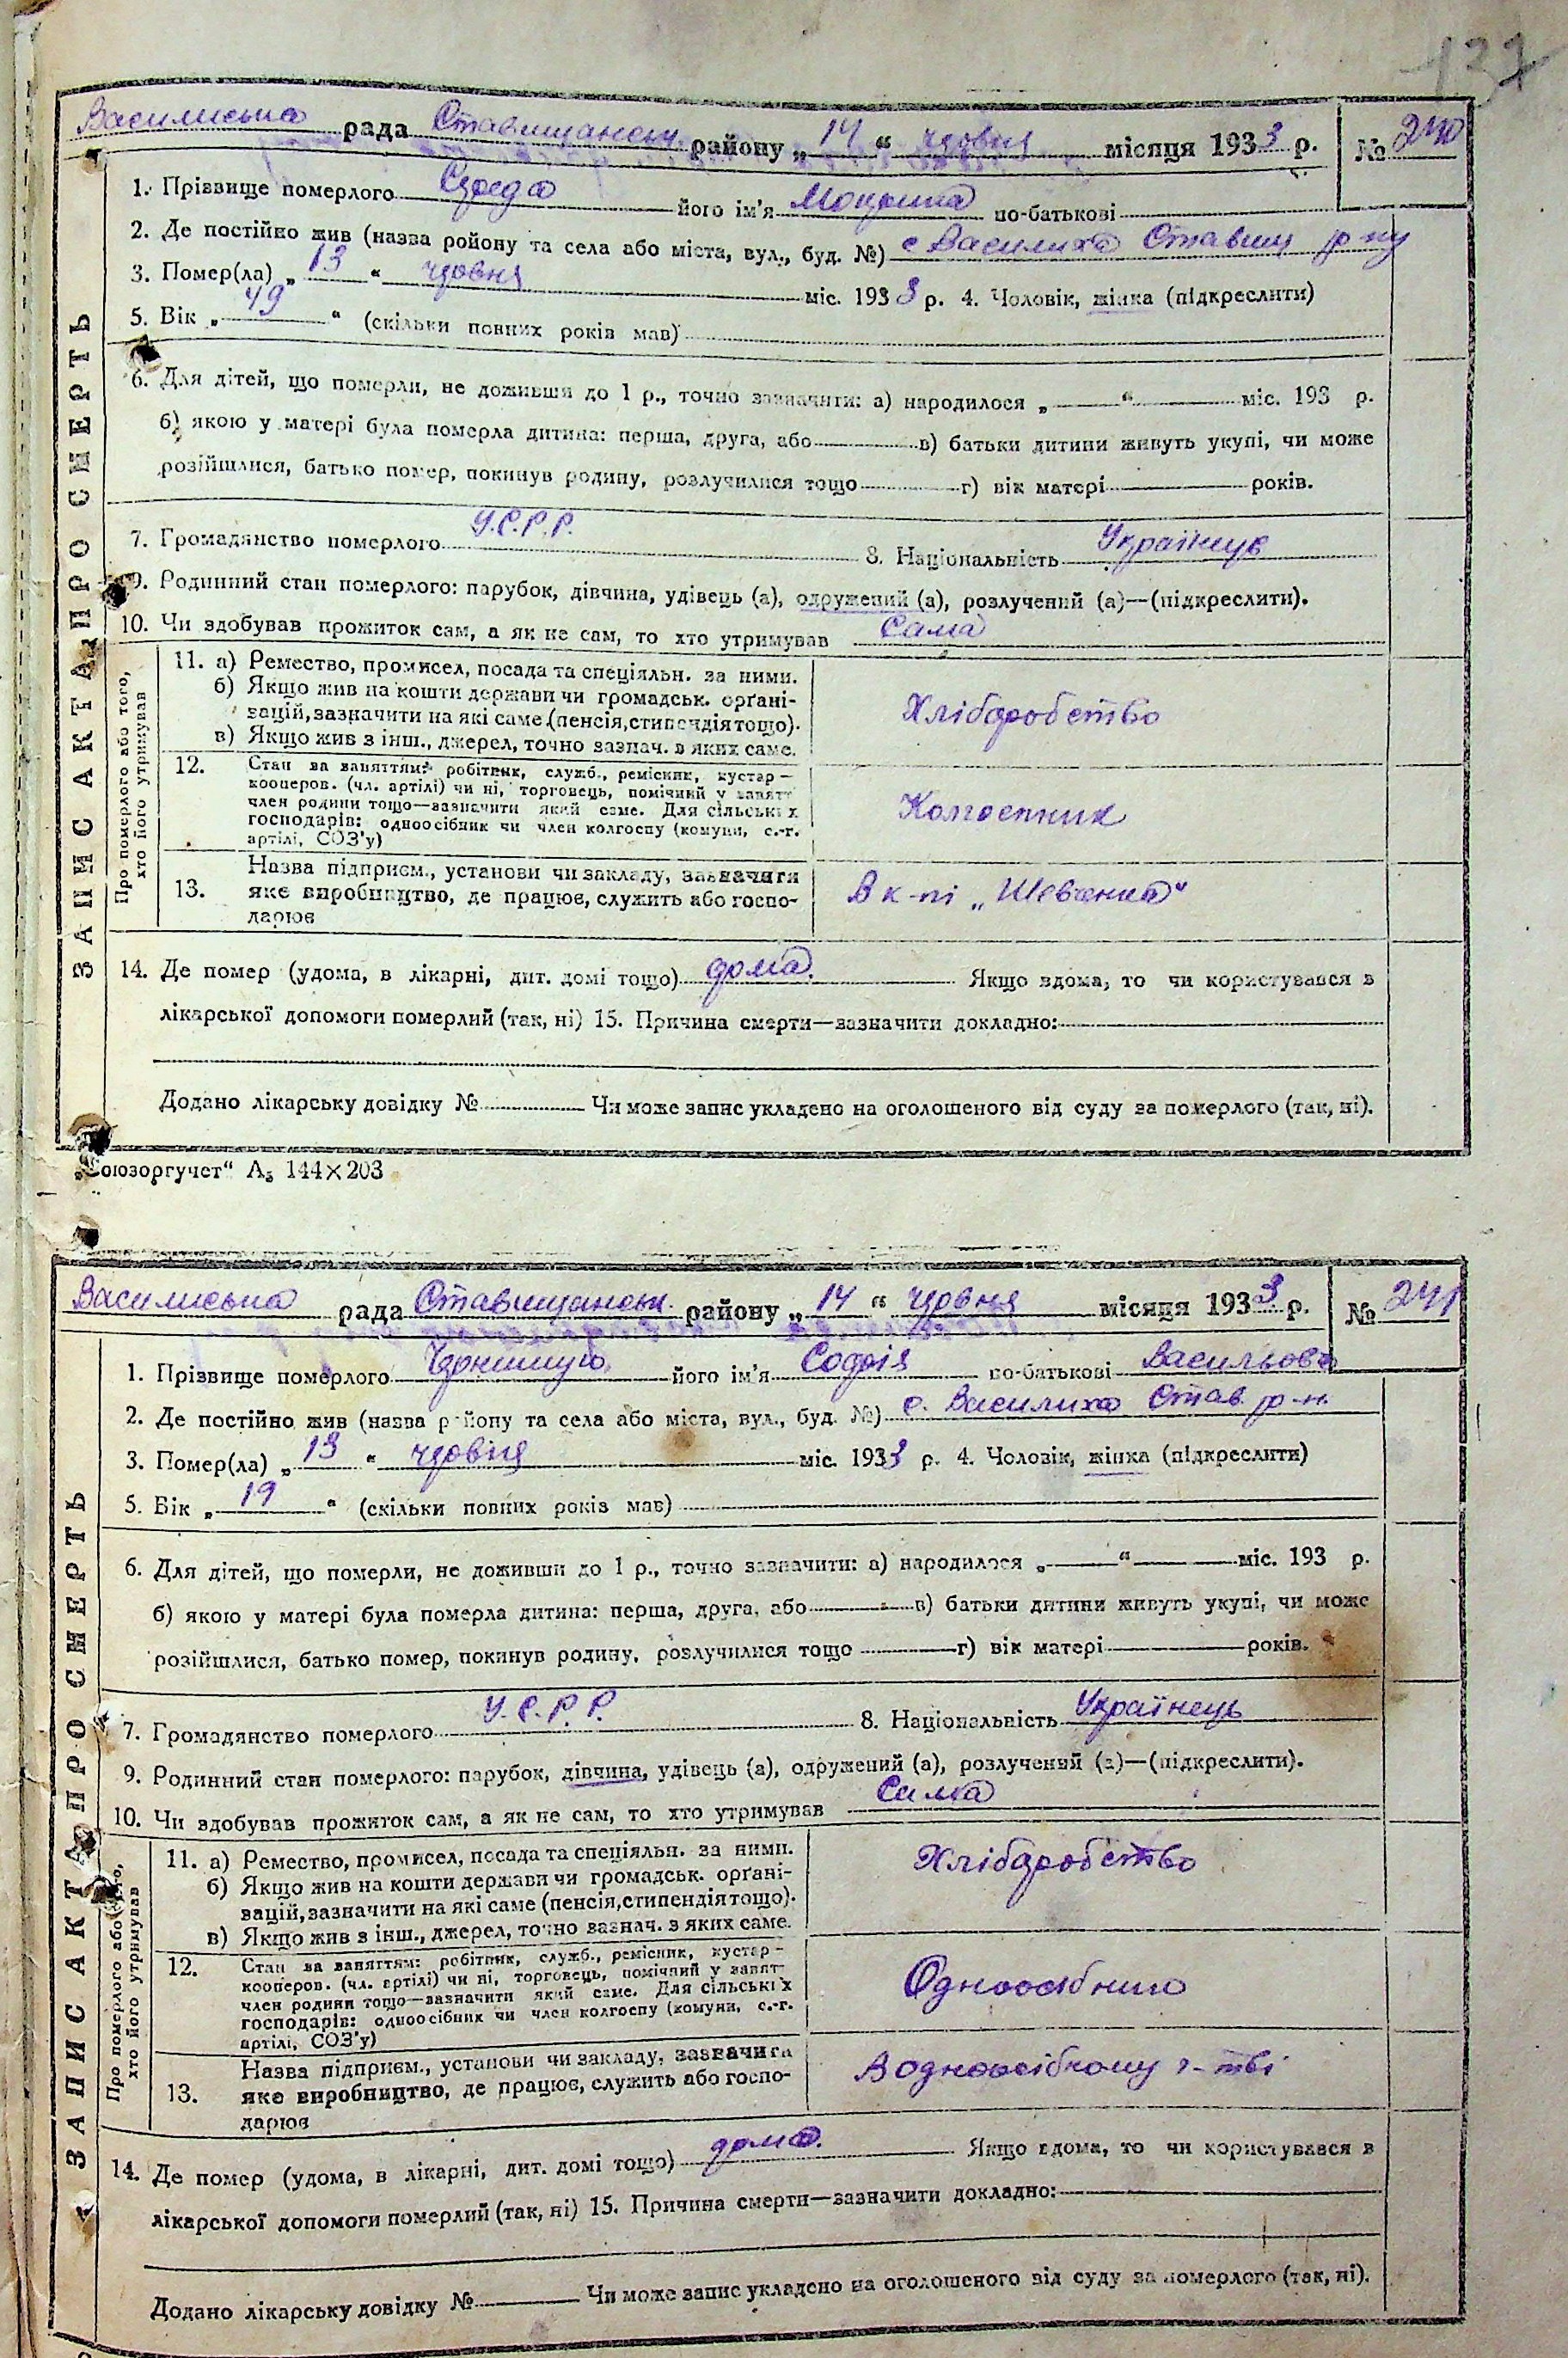 137
Василиська рада Ставищанськ. району „ 14 “ червня місяця 1933 р. № 240
1. Прізвище померлого Середа його ім'я Мокрина по-батькові
2. Де постійно жив (назва ройону та села або міста, вул., буд. №) с Василиха Ставищ р-ну
3. Помер(ла) „ 13 “ червня міс. 1933 р. 4. Чоловік, жінка (підкреслити)
5. Вік „ 49 “ (скільки повних років мав)
6. Для дітей, що померли, не доживши до 1 р., точно зазначити: а) народилося „ “ міс. 193 р.
б) якою у матері була померла дитина: перша, друга, або в) батьки дитини живуть укупі, чи може
розійшлися, батько помер, покинув родину, розлучилися тощо г) вік матері років.
7. Громадянство померлого У.С.Р.Р. 8. Національність Українець
9. Родинний стан померлого: парубок, дівчина, удівець (а), одружений (а), розлучений (а)—(підкреслити).
10. Чи здобував прожиток сам, а як не сам, то хто утримував Сама
11. а) Ремество, промисел, посада та спеціяльн. за ними.
б) Якщо жив на кошти держави чи громадськ. орґані-
зацій, зазначити на які саме (пенсія, стипендія тощо).
в) Якщо жив з інш., джерел, точно зазнач. з яких саме.
Хліборобство
12. Стан за заняттям: робітник, служб., ремісник, кустар—
кооперов. (чл. артілі) чи ні, торговець, помічний у занят-
член родини тощо—зазначити який саме. Для сільських
господарів: одноосібник чи член колгоспу (комуни, с.-г.
артілі, СОЗ'у)
Колгоспник
13. Назва підприєм., установи чи закладу, зазначити
яке виробництво, де працює, служить або госпо-
дарює
В к-пі „Шевченка“
14. Де помер (удома, в лікарні, дит. домі тощо) дома. Якщо вдома, то чи користувався в
лікарської допомоги померлий (так, ні) 15. Причина смерти—зазначити докладно:
Додано лікарську довідку № Чи може запис укладено на оголошеного від суду за померлого (так, ні).
ЗАПИС АКТА ПРО СМЕРТЬ
Про померлого або того,
хто його утримував
„Союзоргучет“ А₅ 144×203
Василиська рада Ставищанськ району „ 14 “ червня місяця 1933 р. № 241
1. Прізвище померлого його ім'я Софія по-батькові Васильова
2. Де постійно жив (назва району та села або міста, вул., буд. №) с. Василиха Став. р-н.
3. Помер(ла) „ 13 “ червня міс. 1933 р. 4. Чоловік, жінка (підкреслити)
5. Вік „ 19 “ (скільки повних років мав)
6. Для дітей, що померли, не доживши до 1 р., точно зазначити: а) народилося „ “ міс. 193 р.
б) якою у матері була померла дитина: перша, друга, або в) батьки дитини живуть укупі, чи може
розійшлися, батько помер, покинув родину, розлучилися тощо г) вік матері років.
7. Громадянство померлого У.С.Р.Р. 8. Національність Українець
9. Родинний стан померлого: парубок, дівчина, удівець (а), одружений (а), розлучений (а)—(підкреслити).
10. Чи здобував прожиток сам, а як не сам, то хто утримував Сама
11. а) Ремество, промисел, посада та спеціяльн. за ними.
б) Якщо жив на кошти держави чи громадськ. орґані-
зацій, зазначити на які саме (пенсія, стипендія тощо).
в) Якщо жив з інш., джерел, точно зазнач. з яких саме.
Хліборобство
12. Стан за заняттям: робітник, служб., ремісник, кустар—
кооперов. (чл. артілі) чи ні, торговець, помічний у занят-
член родини тощо—зазначити який саме. Для сільських
господарів: одноосібник чи член колгоспу (комуни, с.-г.
артілі, СОЗ'у)
Одноосібник
13. Назва підприєм., установи чи закладу, зазначити
яке виробництво, де працює, служить або госпо-
дарює
В одноосібному г-тві
14. Де помер (удома, в лікарні, дит. домі тощо) дома. Якщо вдома, то чи користувався в
лікарської допомоги померлий (так, ні) 15. Причина смерти—зазначити докладно:
Додано лікарську довідку № Чи може запис укладено на оголошеного від суду за померлого (так, ні).
ЗАПИС АКТА ПРО СМЕРТЬ
Про померлого або того,
хто його утримував